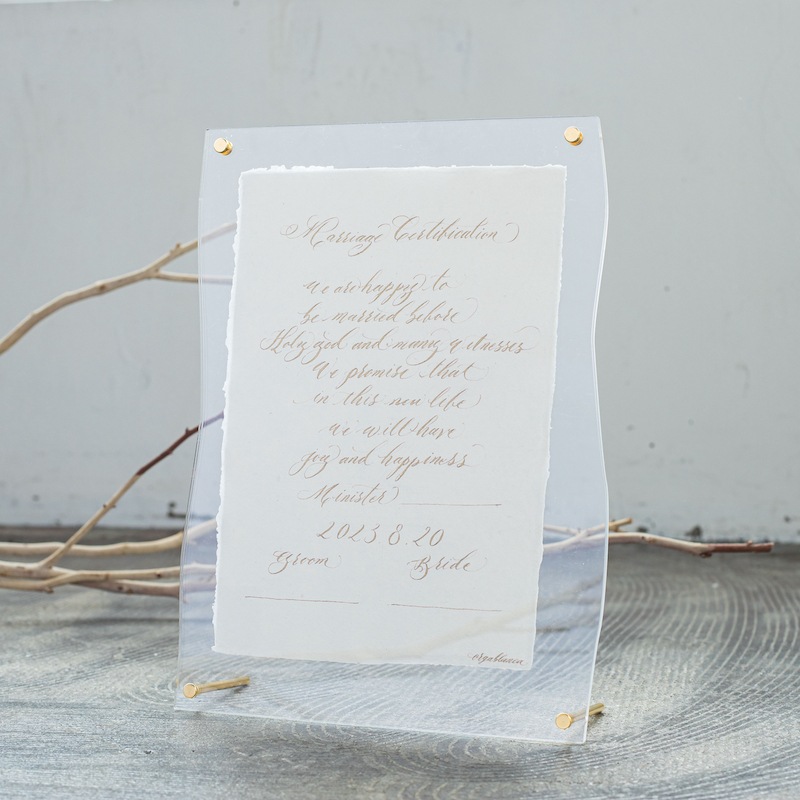 Marriage Certification
We are happy to
be married before
Holy god and many witnesses
We promise that
in this new life
we will have
joy and happiness
Minister
2023 8. 20
Groom Bride